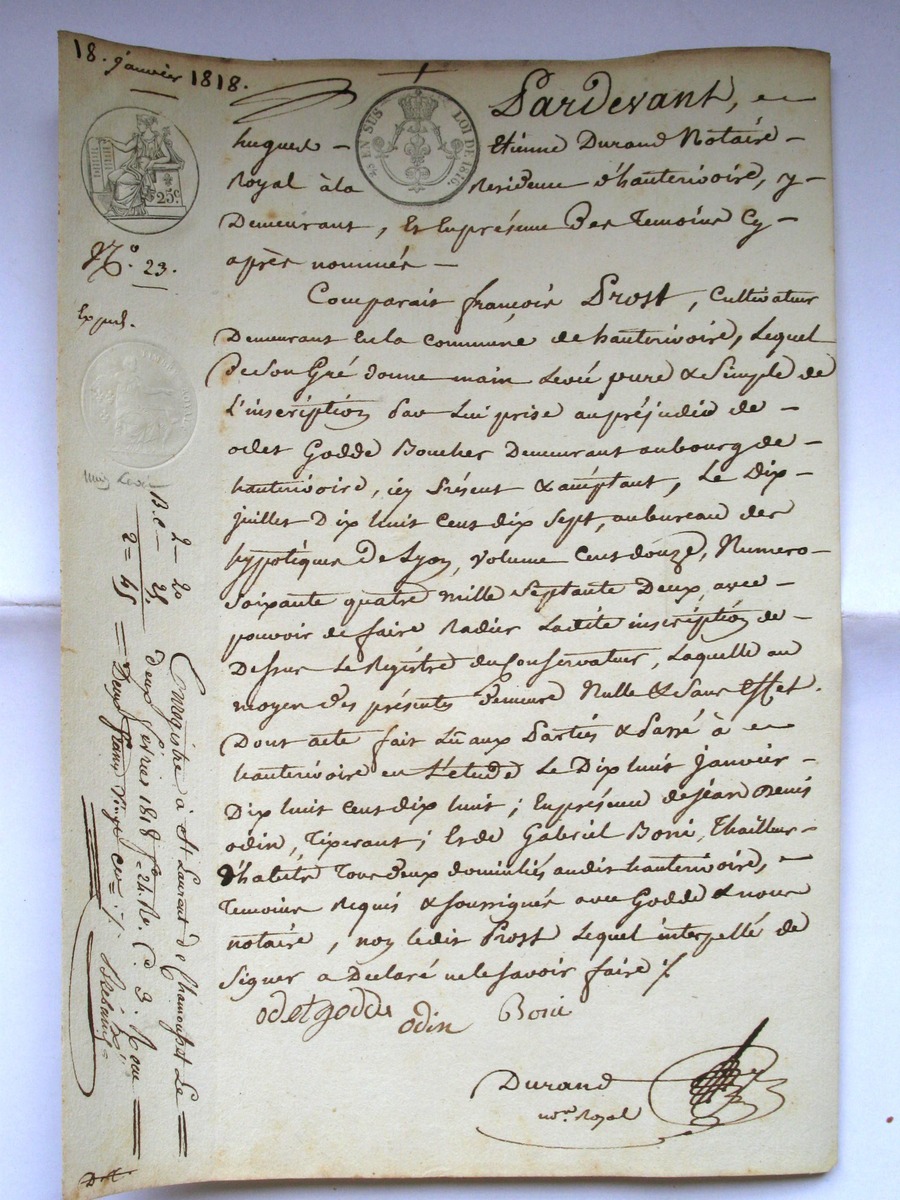 18. janvier 1818.
Pardevant,
hugues - Etienne Durand Notaire -
Royal à la Résidence d'hauterivoire, y -
Demeurant, et Enprésence Des Temoins Cy -
après nommés -
Comparait françois Prost, Cultivateur
Demeurant En la commune de hauterivoire, Lequel
de Son Gré donne main Levée pure & Simple de
L'inscription par Lui prise au préjudice de -
odet Godde Boucher Demeurant au bourg de -
hauterivoire, icy Présent & acceptant, Le Dix -
juillet Dix huit Cent dix Sept, au bureau des
hypotèques de Lyon, volume Cent douze, Numero -
Soixante quatre mille Septante Deux, avec -
pouvoir de faire Radier Ladite inscription de -
Dessus Le Registre du Conservateur, Laquelle au
moyen des présentes Demeure Nulle & Sans Effet.
Dont acte fait Lû aux Parties & Passé à
hauterivoire en L'etude Le Dix huit Janvier -
Dix huit Cent dix huit ; Enprésence de Jean Denis
odin, Tixerant ; Et de Gabriel Boni, Thailleur -
d'habits Tous deux domiciliés audit hauterivoire,
Temoins Requis & soussignés avec Godde & nous
notaire, non ledit Prost Lequel interpellé de
Signer a Declaré ne le savoir faire ./.
odet godde odin Boni
Durand
no.re Royal
EN SUS LOI DE 1816.
25c
N.o 23.
Exped.
Enregistré à St Laurent de Chamousset Le
deux février 1818 f.o 24 R.o C. 3. Reçu
Deux francs Vingt
2 - 20
25
2 = 45